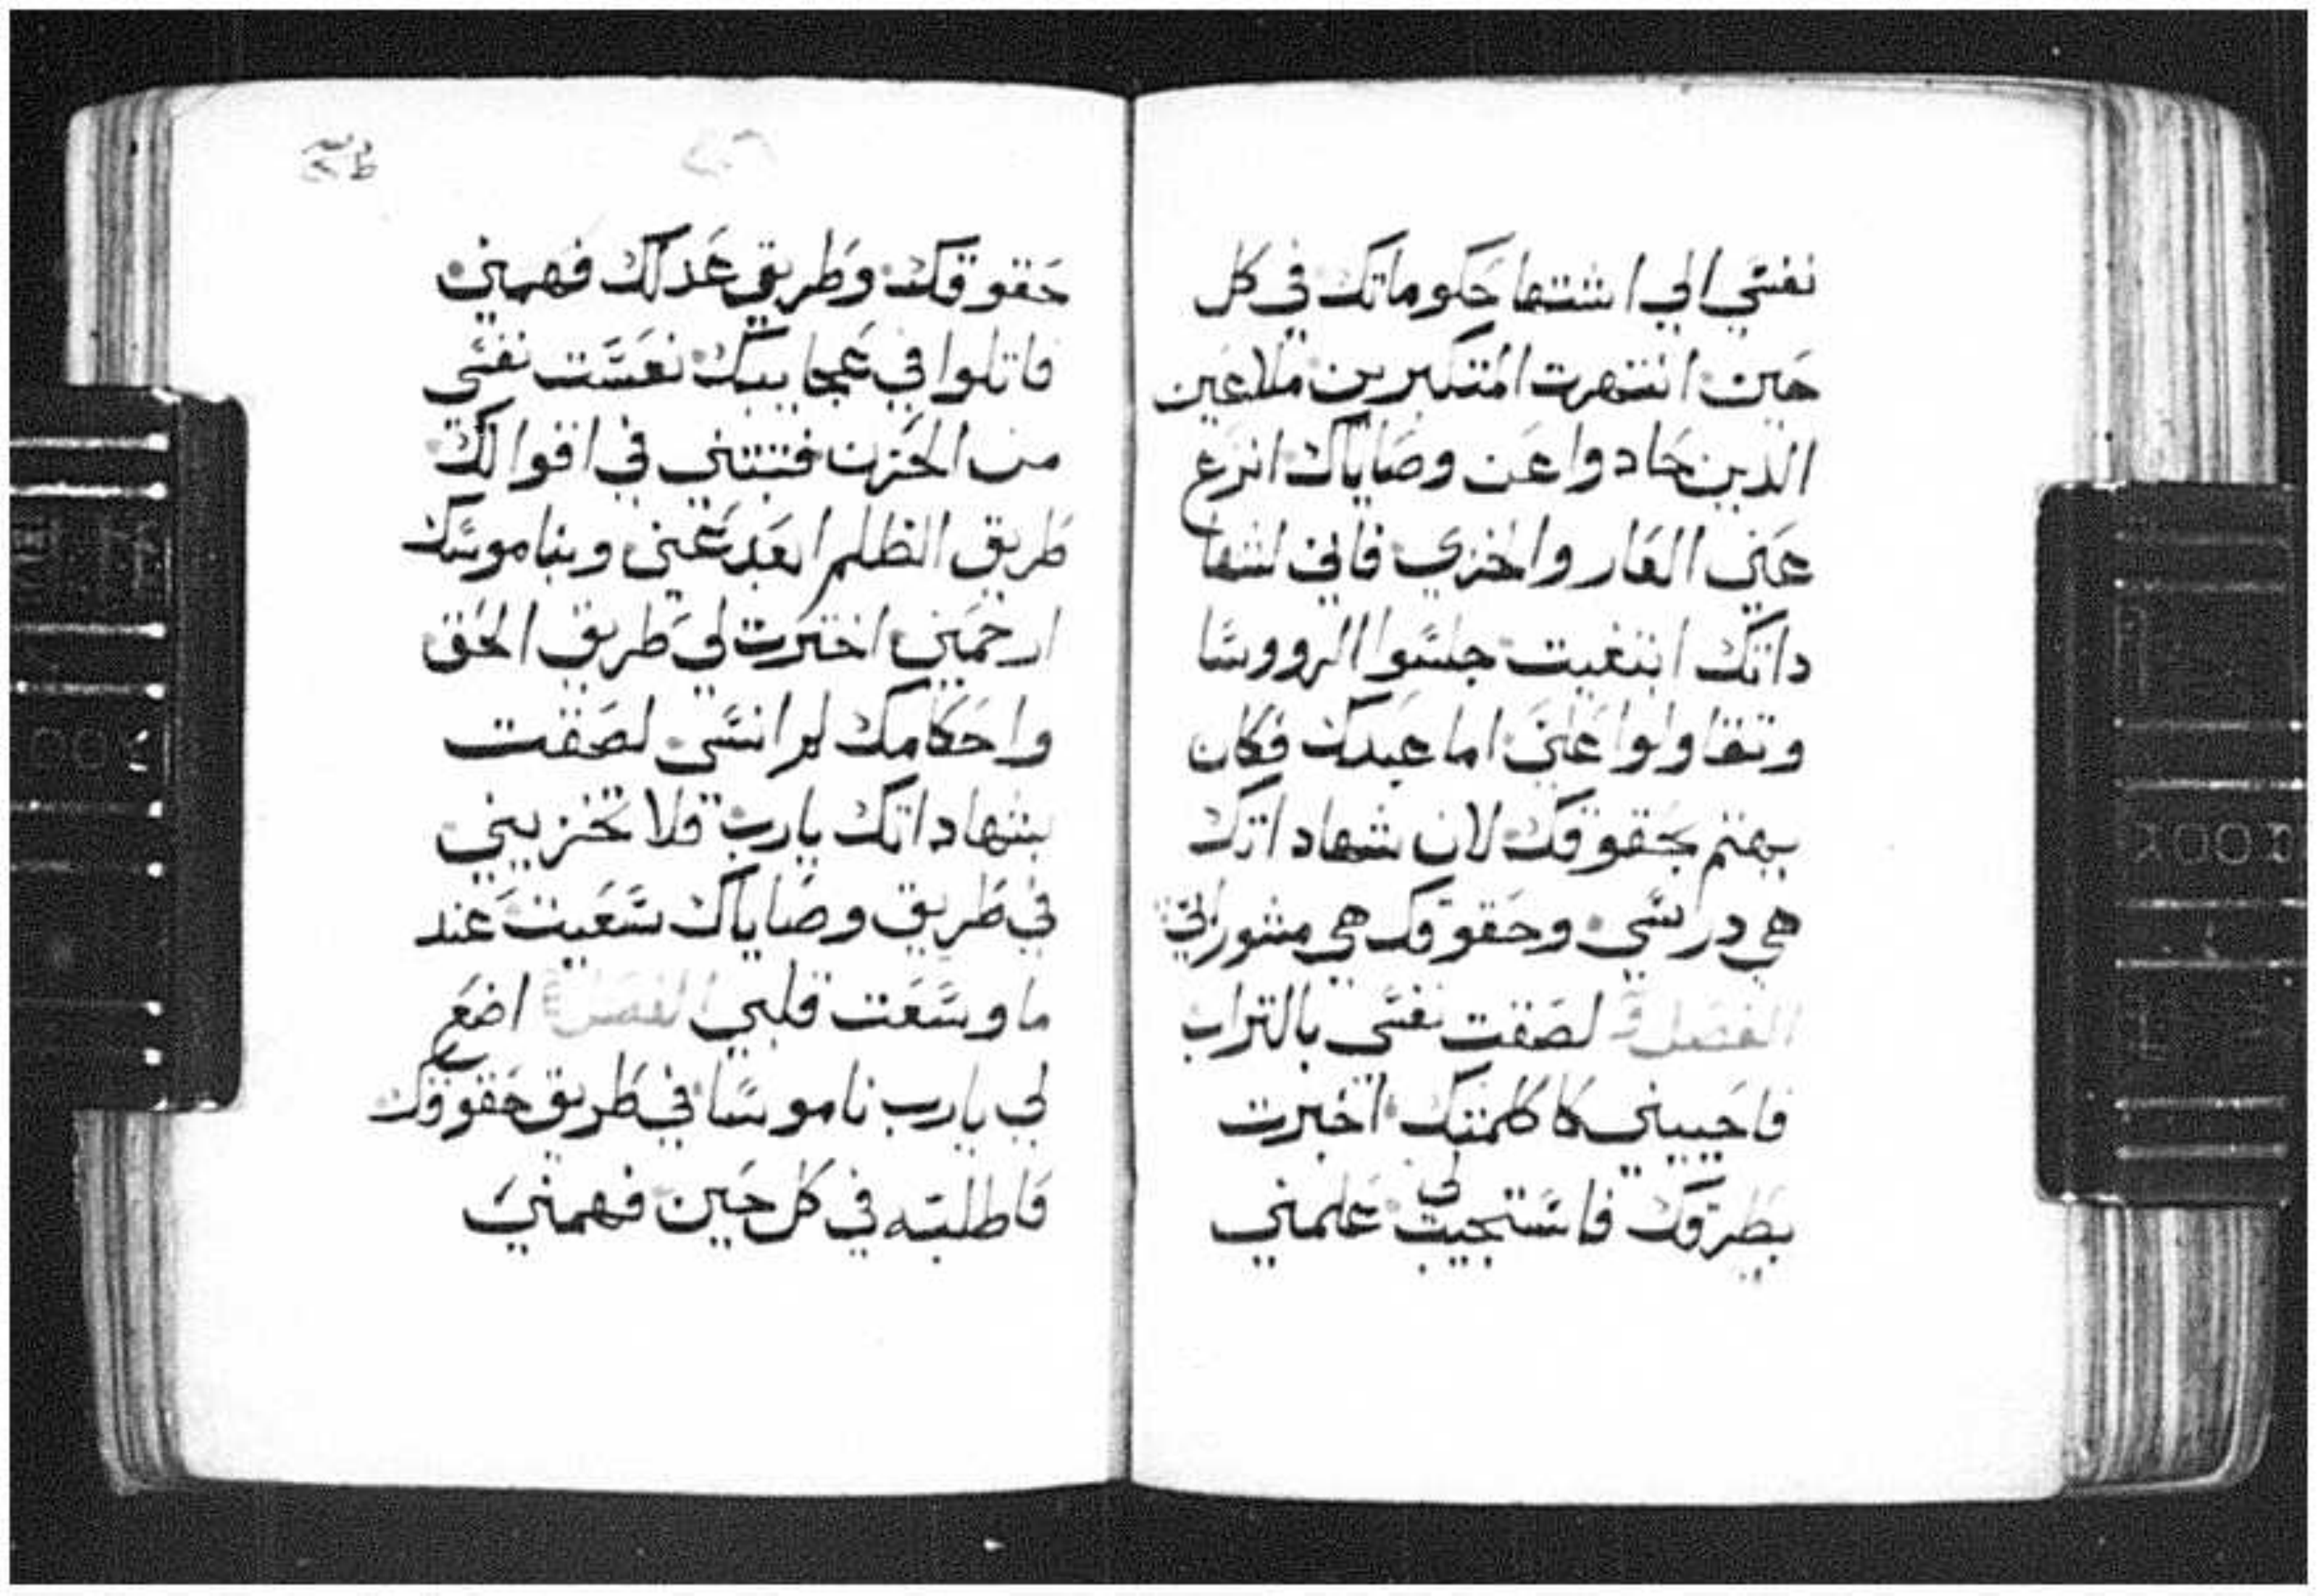 نفسي الي اشتها حكوماتك في كل
حين انتهرت المتكبرين ملاعين
الذين حادوا عن وصاياك انزع
عني العار والخزي فاني لشها
داتك ابتغيت جلسوا الرووسا
وتقاولوا علي اما عبدك فكان
يهتم بحقوقك لان شهاداتك
هي دراستي وحقوقك هي مشوراتي
الفصل لصقت نفسي بالتراب
فاحييني كاكلمتك اخبرت
بطرقك فاستجيت لي علمني
حقوقك وطريق عدلك فهمني
فاتلوا في عجايبك نعست نفسي
من الحزن فتبتني في اقوالك
طريق الظلم ابعد عني وبناموسك
ارحمني اخترت لي طريق الحق
واحكامك لم انسي لصقت
بشهاداتك يارب فلا تخزيني
في طريق وصاياك سعيت عند
ما وسعت قلبي الفصل اضع
لي يارب ناموسا في طريق حقوقك
فاطلبه في كل حين فهمني